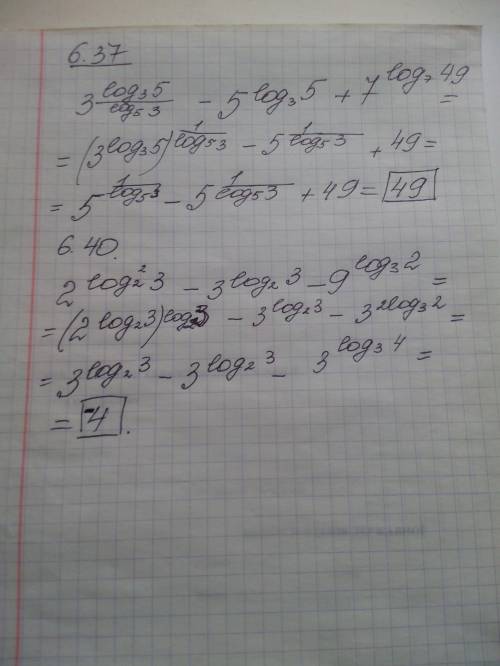 6.37
3^{\frac{log_3 5}{log_5 3}} - 5^{log_3 5} + 7^{log_7 49} =
= (3^{log_3 5})^{\frac{1}{log_5 3}} - 5^{\frac{1}{log_5 3}} + 49 =
= 5^{\frac{1}{log_5 3}} - 5^{\frac{1}{log_5 3}} + 49 = 49
6.40.
2^{log_2^2 3} - 3^{log_2 3} - 9^{log_3 2} =
= (2^{log_2 3})^{log_2 3} - 3^{log_2 3} - 3^{2log_3 2} =
= 3^{log_2 3} - 3^{log_2 3} - 3^{log_3 4} =
= -4.